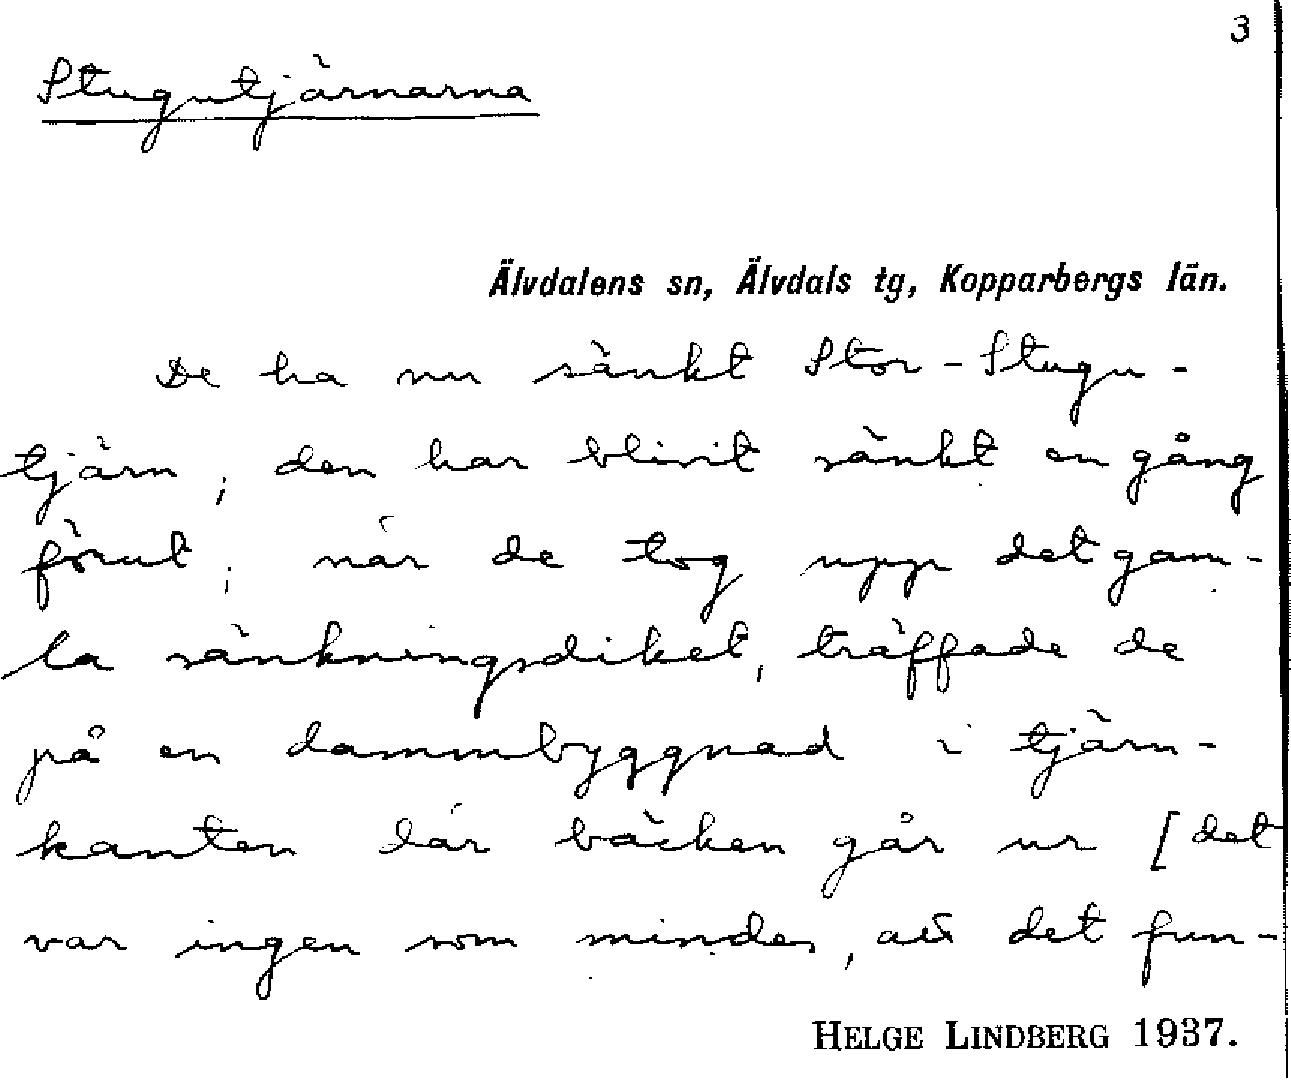 3
Stugutjärnarna
Älvdalens sn, Älvdals tg, Kopparbergs län.
De ha nu sänkt Stor-Stugu-
tjärn, den har blivit sänkt en gång
förut; när de tog upp det gam-
la sänkningsdiket, träffade de
på en dammbyggnad i tjärn-
kanten där bäcken går ur [det
var ingen som mindes, att det fun-
HELGE LINDBERG 1937.